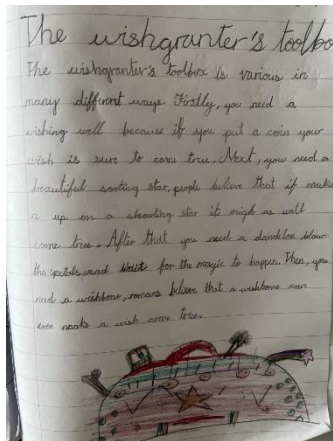 The wishgranter's toolbo
The wishgranter's toolbox is various in
many different ways Firstly, you need a
wishing well because if you put a coin your
wish is sure to come true. Next, you need a
beautiful sooting star, people believe that if make
a up on a shooting star it migh as well
come true. After that you need a dandelion blow
the and wait for the magic to happen. Then, you
need a wishbone, romans believe that a wishbone can
make a wish come true.